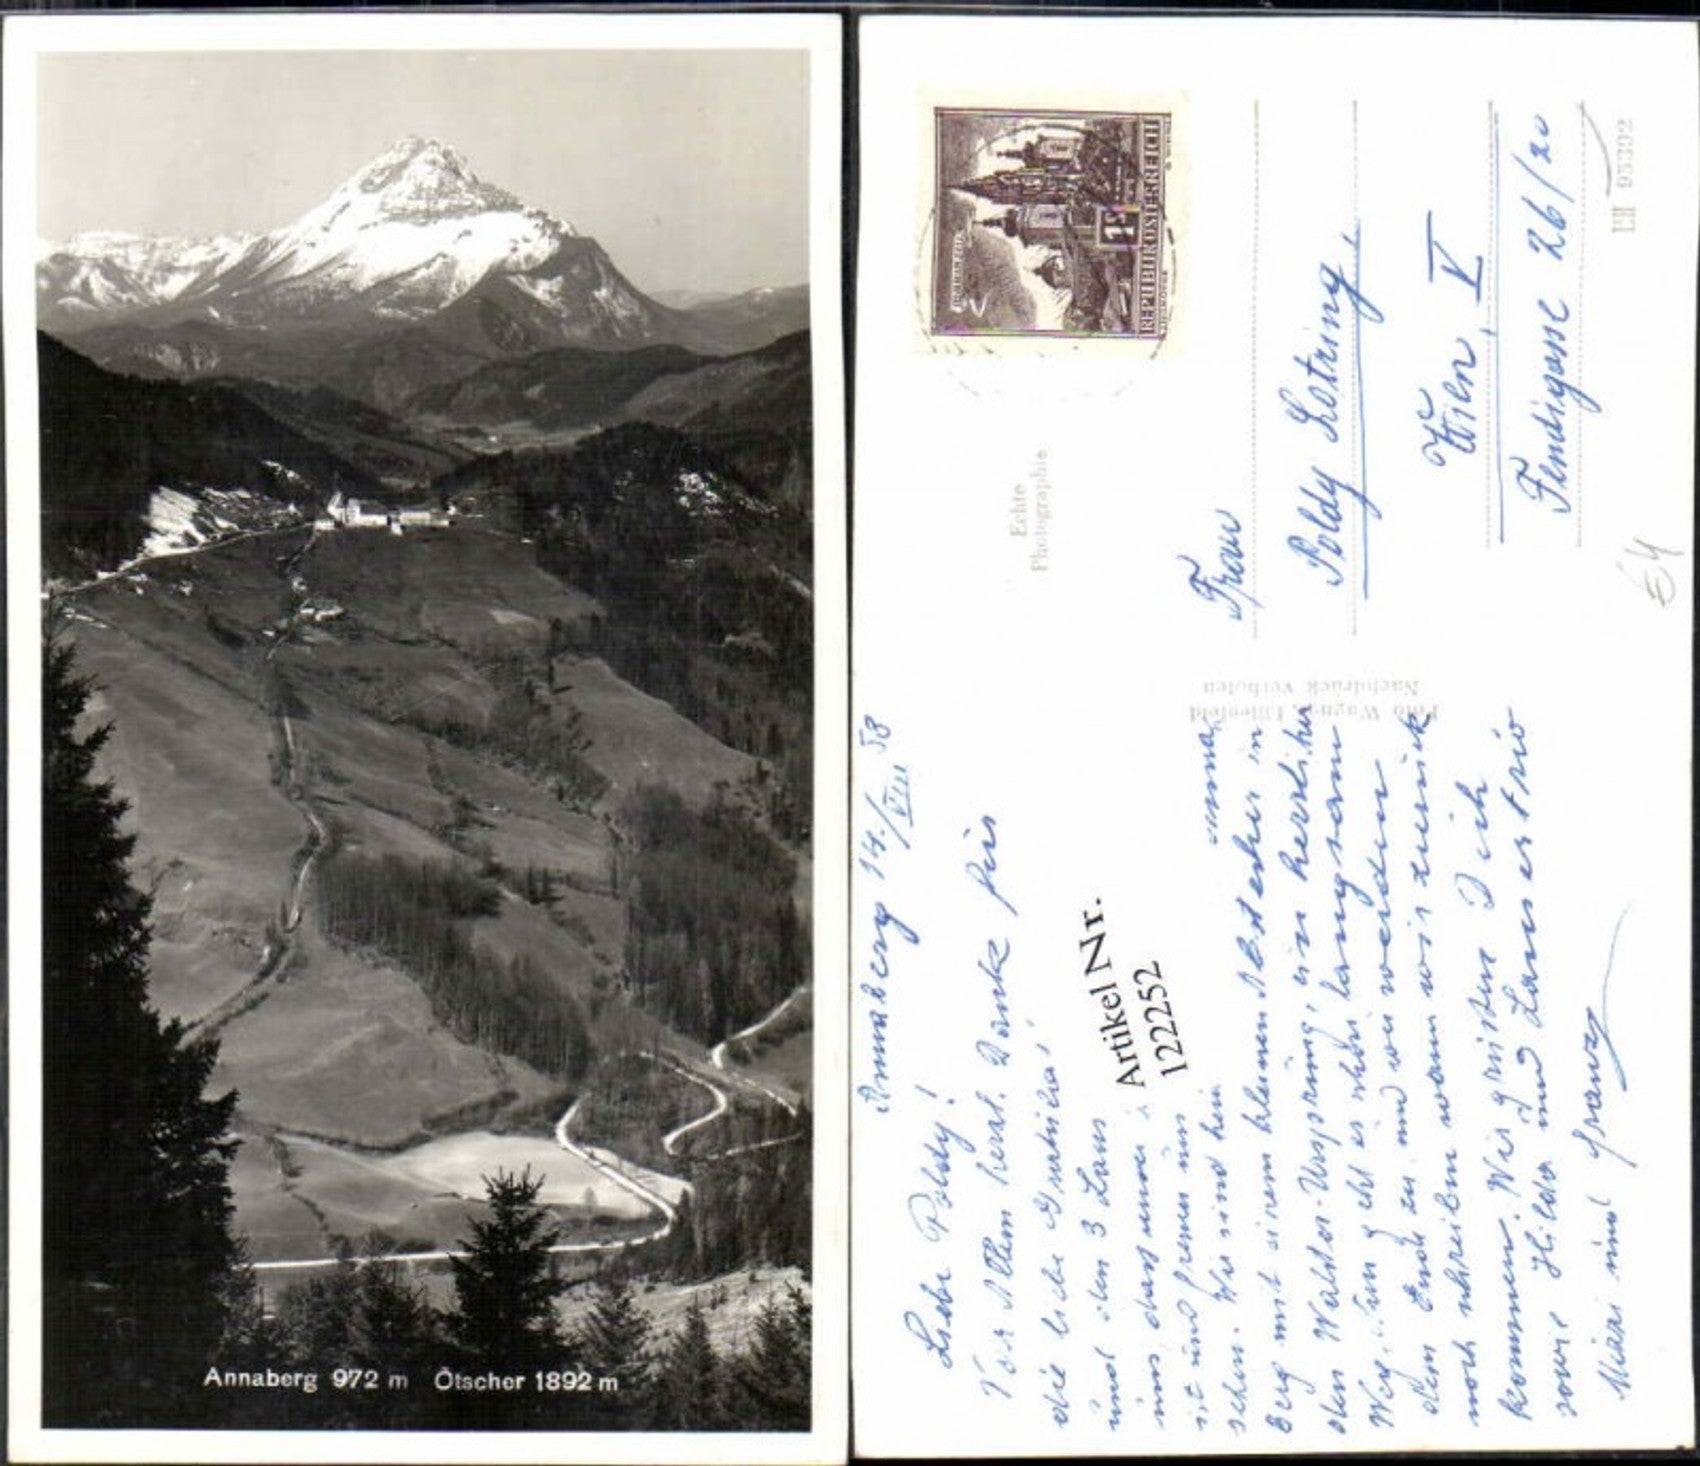 Annaberg 972 m Ötscher 1892 m
REPUBLIK ÖSTERREICH
1S
Echte
Photographie
Frau
Poldy Lotringer
Wien, V
Fendigasse 26/20
LH 95302
Foto Wagner, Lilienfeld
Nachdruck verboten
€4
Artikel Nr.
122252
Annaberg 14./VIII 58
Liebe Poldy!
Vor Allem herzl. Dank für
die liebe Gratulat.
und den 3 Laus
uns, dass unser
ist und freuen uns
sehen. Wir sind kein
Berg mit einem kleinen Abstecher in
den Walster-Ursprung, ein herrlicher
Weg. Nun geht es schon langsam
dem Ende zu und wir werden
noch schreiben wann wir zurück
kommen. Wir grüssen Dich
sowie Hilda und
Mari und Franz